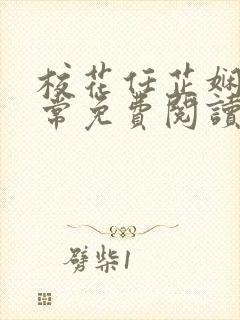 校花任芷娴
常免费阅读
劈柴1